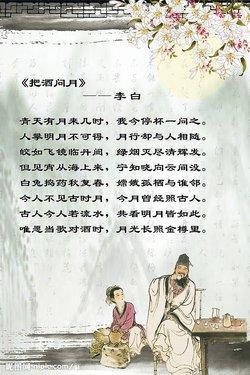 《把酒问月》
——李白
青天有月来几时，我今停杯一问之。
人攀明月不可得，月行却与人相随。
皎如飞镜临丹阙，绿烟灭尽清辉发。
但见宵从海上来，宁知晓向云间没。
白兔捣药秋复春，嫦娥孤栖与谁邻。
今人不见古时月，今月曾经照古人。
古人今人若流水，共看明月皆如此。
唯愿当歌对酒时，月光长照金樽里。
昵图网 nipic.com